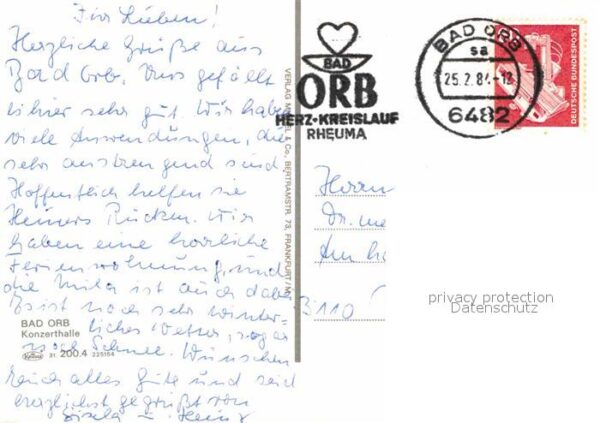 Ihr Lieben!
Herzliche Grüße aus
Bad Orb. Uns gefällt
es hier sehr gut. Wir haben
viele Anwendungen, die
sehr anstrengend sind.
Hoffentlich helfen sie
Heiners Rücken. Wir
haben eine herrliche
Ferienwohnung, und
die Mila ist auch dabei
Es ist noch sehr winter-
liches Wetter, sogar
noch Schnee. Wünschen
Euch alles Gute und seid
herzlichst gegrüßt von
Gisela u. Heinz
BAD ORB
Konzerthalle
31 200.4 225154
& Co., BERTRAMSTR. 73, FRANKFURT/M
BAD
ORB
HERZ-KREISLAUF
RHEUMA
BAD ORB
sa
25.2.84-12
6482
DEUTSCHE BUNDESPOST
Herrn
Dr. me
Am
3110
privacy protection
Datenschutz